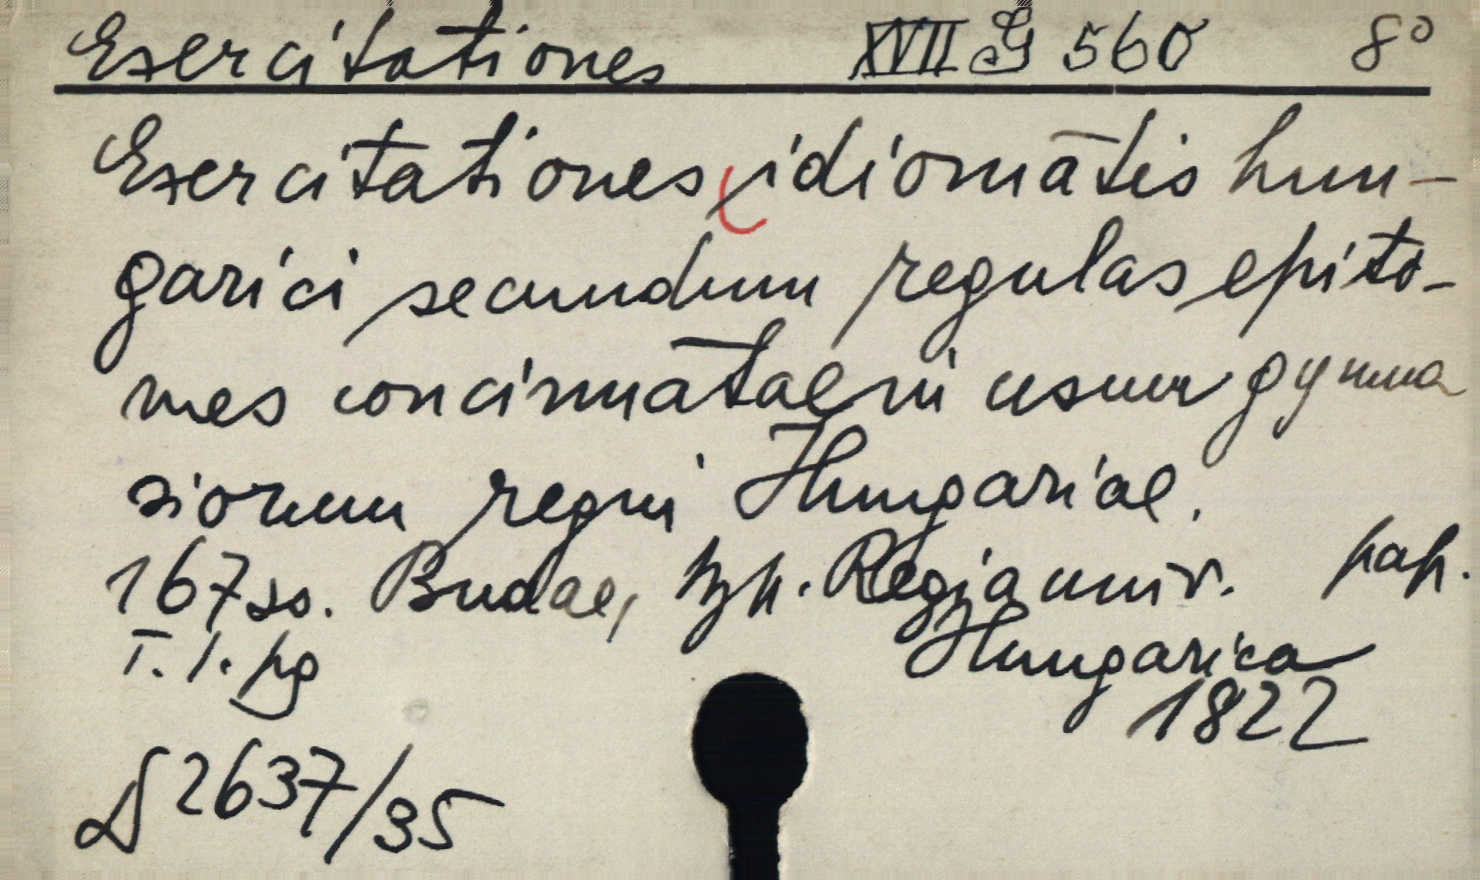 Exercitationes XVII G 560 8°
Exercitationes idiomatis hun-
garici secundum regulas epito-
mes concinnatae in usum gymna
siorum regni Hungariae.
167 so. Budae, typ. Regia univ. pap.
Hungarica
T. I. pg
1822
2637/35